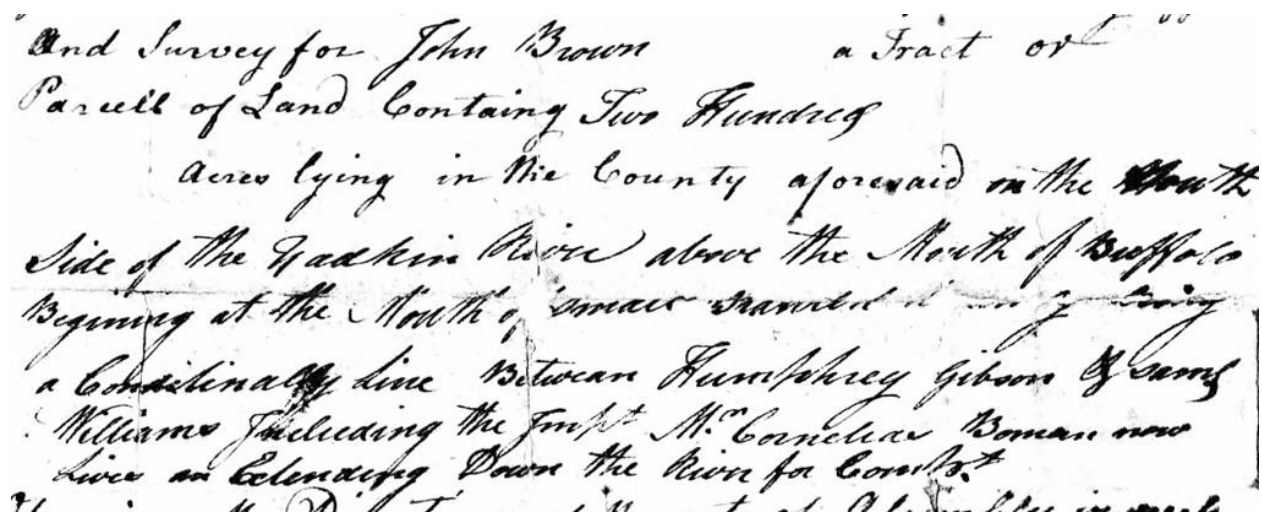 and Survey for John Brown a Tract or
Parcell of Land Containg Two Hundred
Acres lying in the County aforesaid on the
Side of the Yadkin River above the Mouth of Buffolo
Begining at the Mouth of Small
a Line Betwean Humphrey Gibson & Saml
Williams Including the Impt Mr Cornelias Boman now
Lives an Extending Down the River for